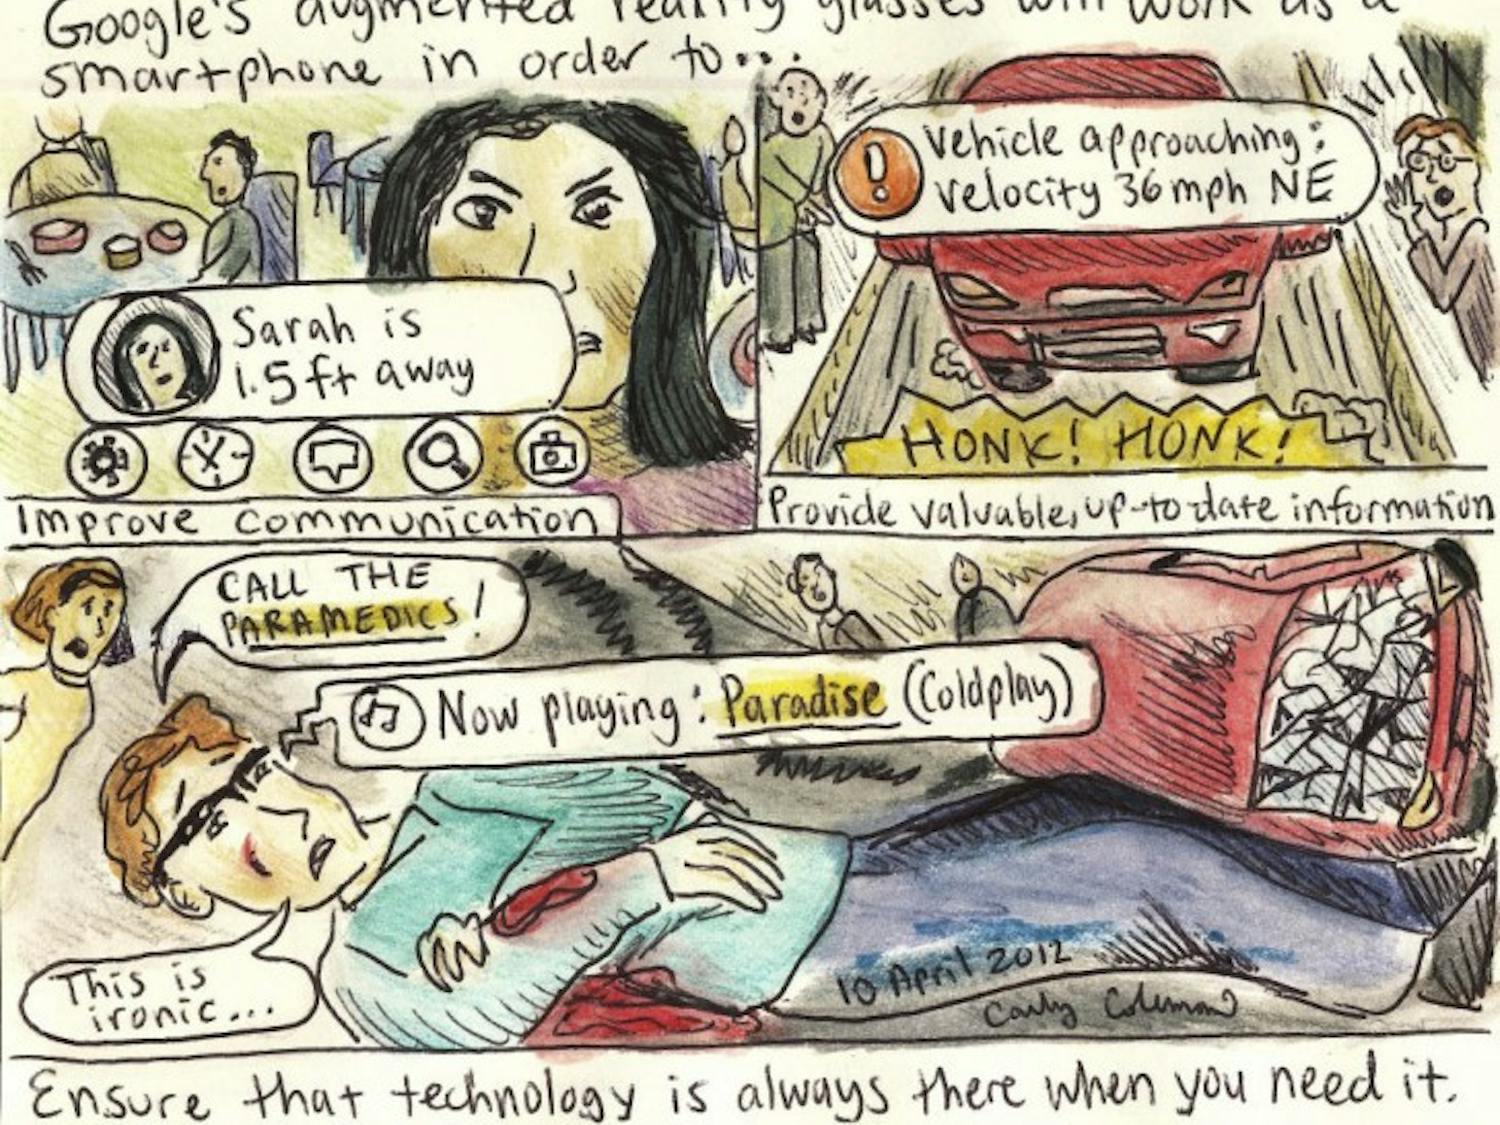 Google's augmented reality glasses will work as a
smartphone in order to...
Sarah is
1.5ft away
Improve communication
!
Vehicle approaching:
velocity 36mph NE
HONK! HONK!
Provide valuable, up-to-date information
CALL THE
PARAMEDICS!
Now playing: Paradise (Coldplay)
This is
ironic...
10 April 2012
Carly Coleman
Ensure that technology is always there when you need it.